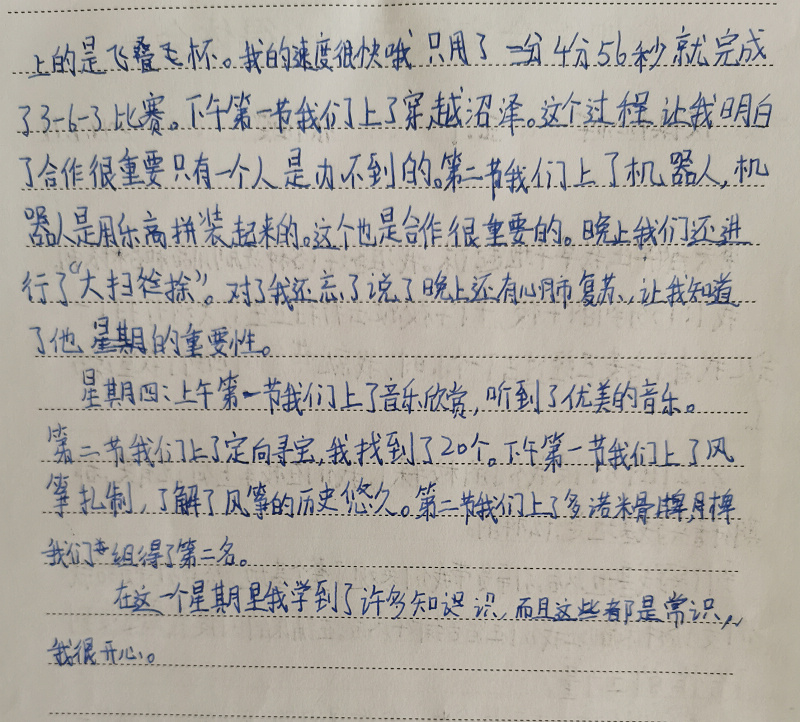 上的是飞叠飞杯。我的速度很快哦只用了二分4分56秒就完成
了3-6-3比赛。下午第一节我们上了穿越沼泽。这个过程让我明白
了合作很重要只有一个人是办不到的。第二节我们上了机器人,机
器人是用乐高拼装起来的。这个也是合作很重要的。晚上我们还进
行了“大扫除”。对了我还忘了说了晚上还有心肺复苏、让我知道
了他 星期的重要性。
星期四:上午第一节我们上了音乐欣赏,听到了优美的音乐。
第二节我们上了定向寻宝,我找到了20个。下午第一节我们上了风
筝扎制,了解了风筝的历史悠久。第二节我们上了多诺米骨牌,
我们组得了第二名。
在这一个星期里我学到了许多知识 识,而且这些都是常识,
我很开心。